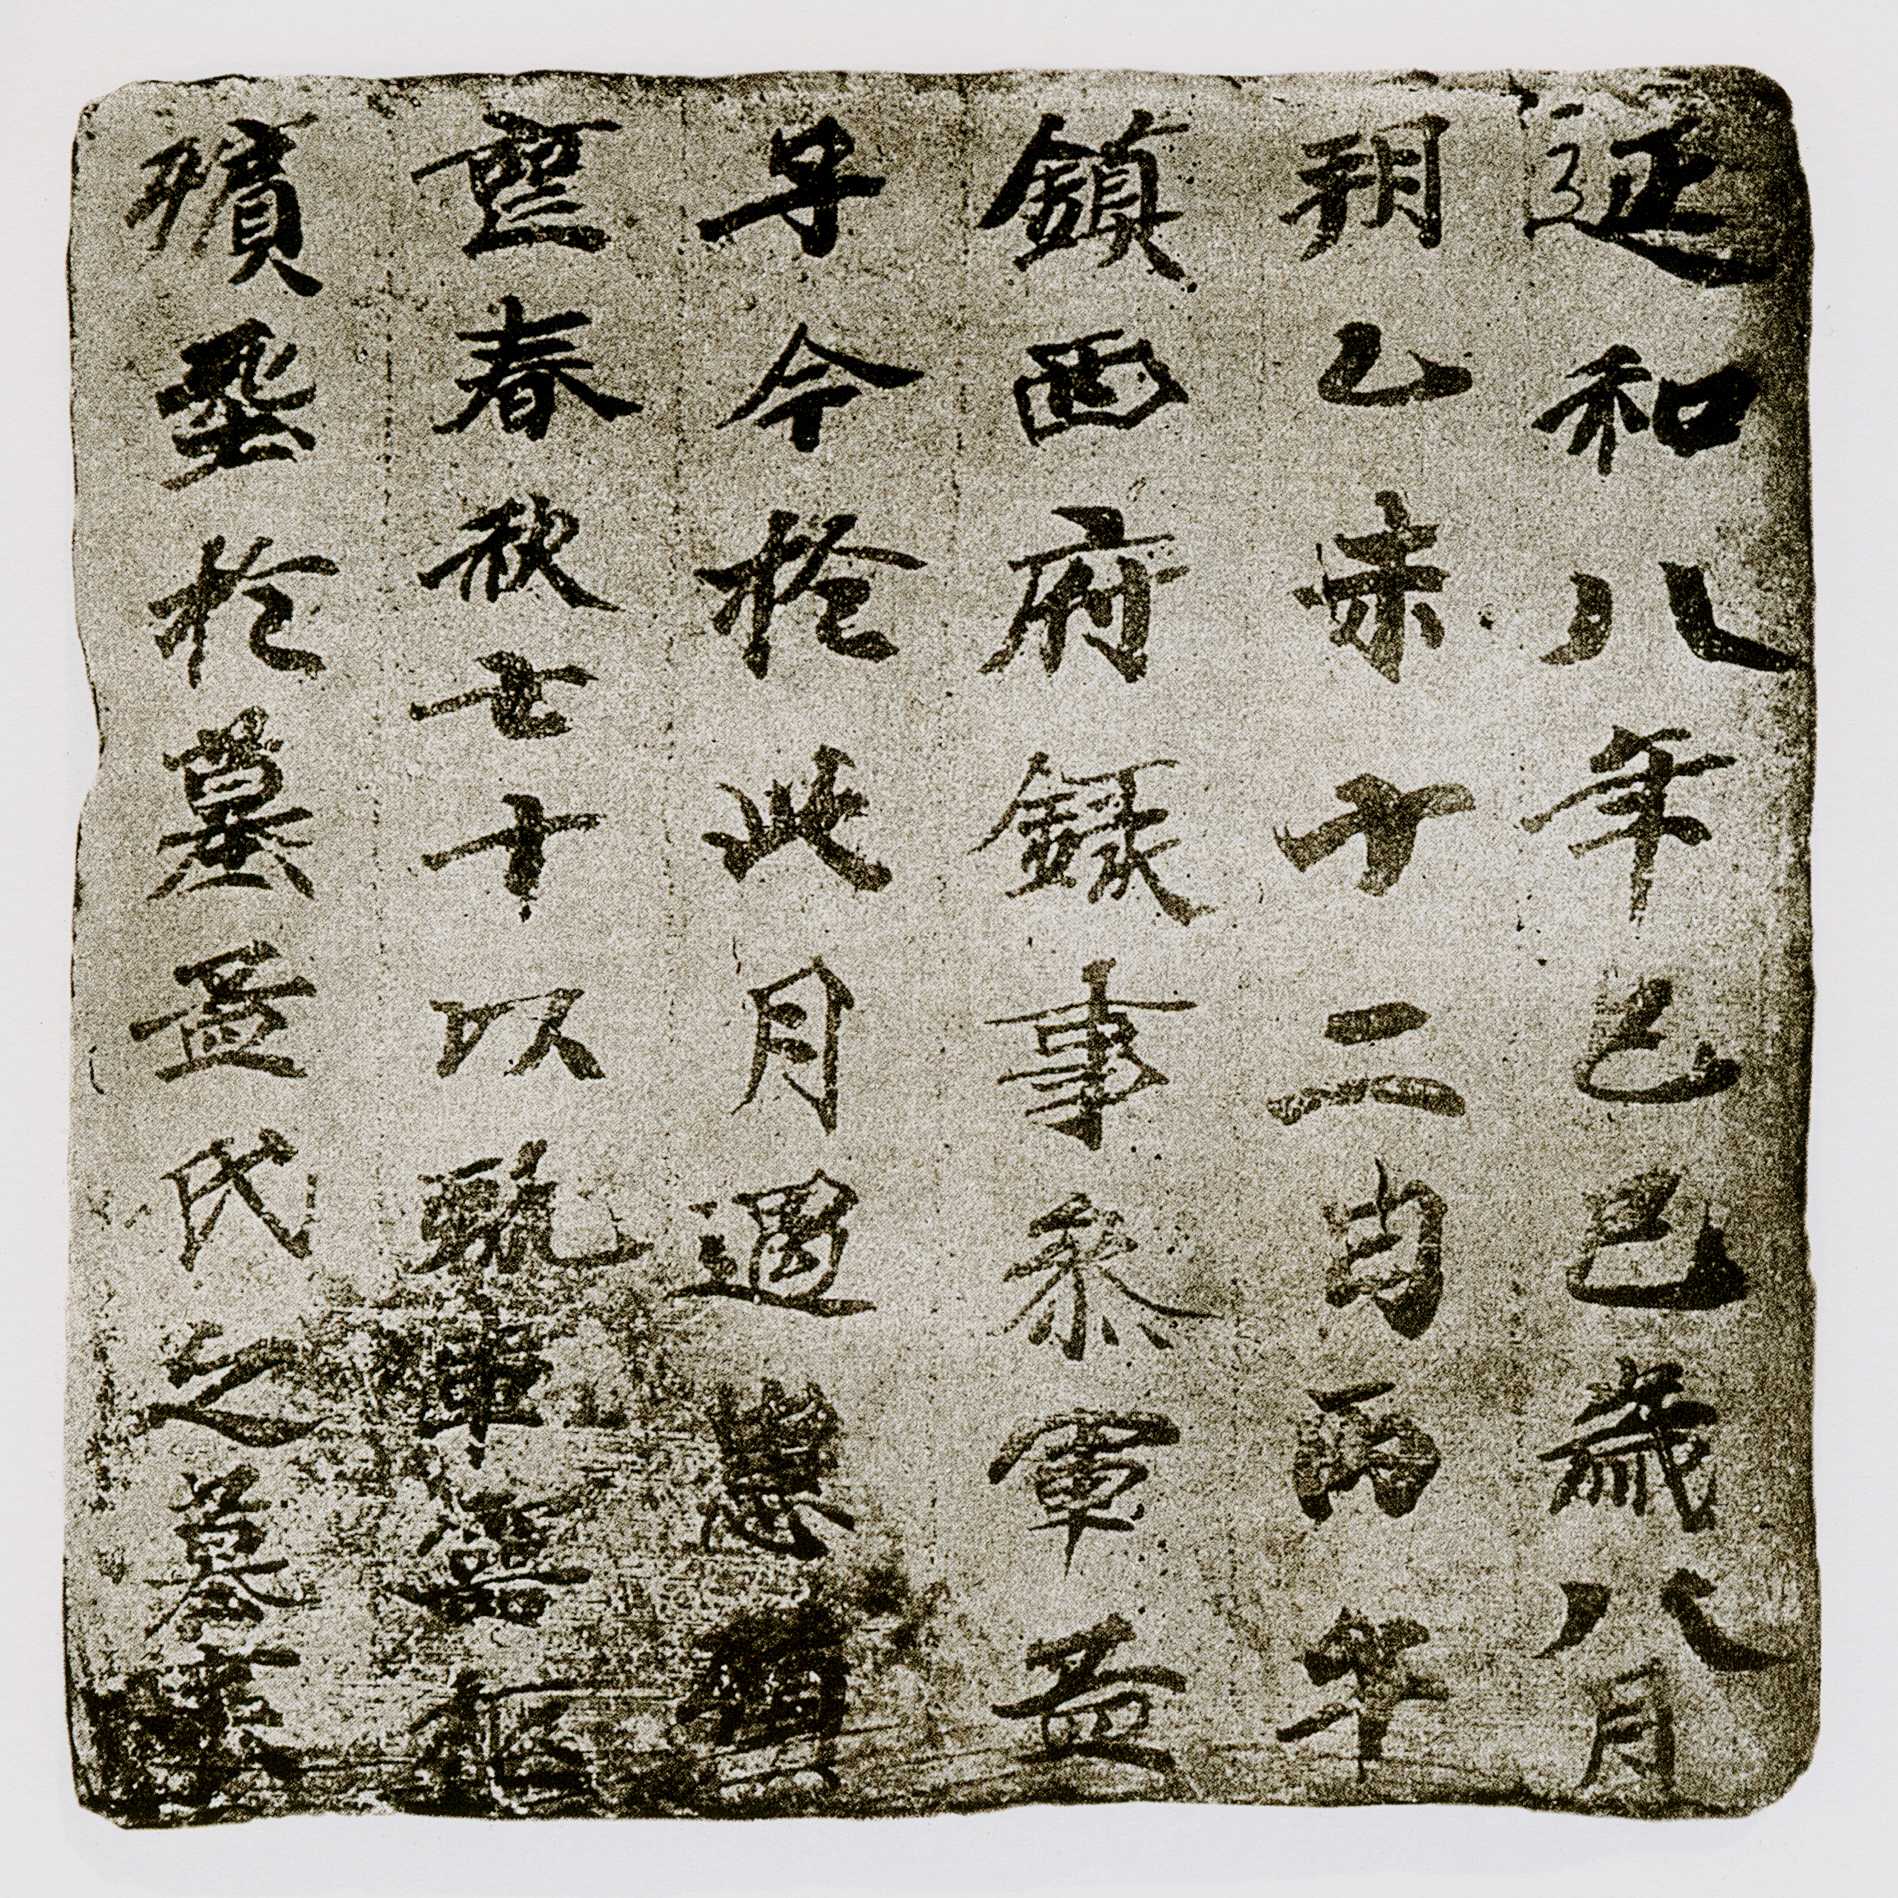 延和八年己巳歲八月
朔乙未十二日丙午
鎮西府錄事參軍孟
子今於此月遇患殞
喪春秋七十以虬車靈柩
殯葬於墓孟氏之墓表